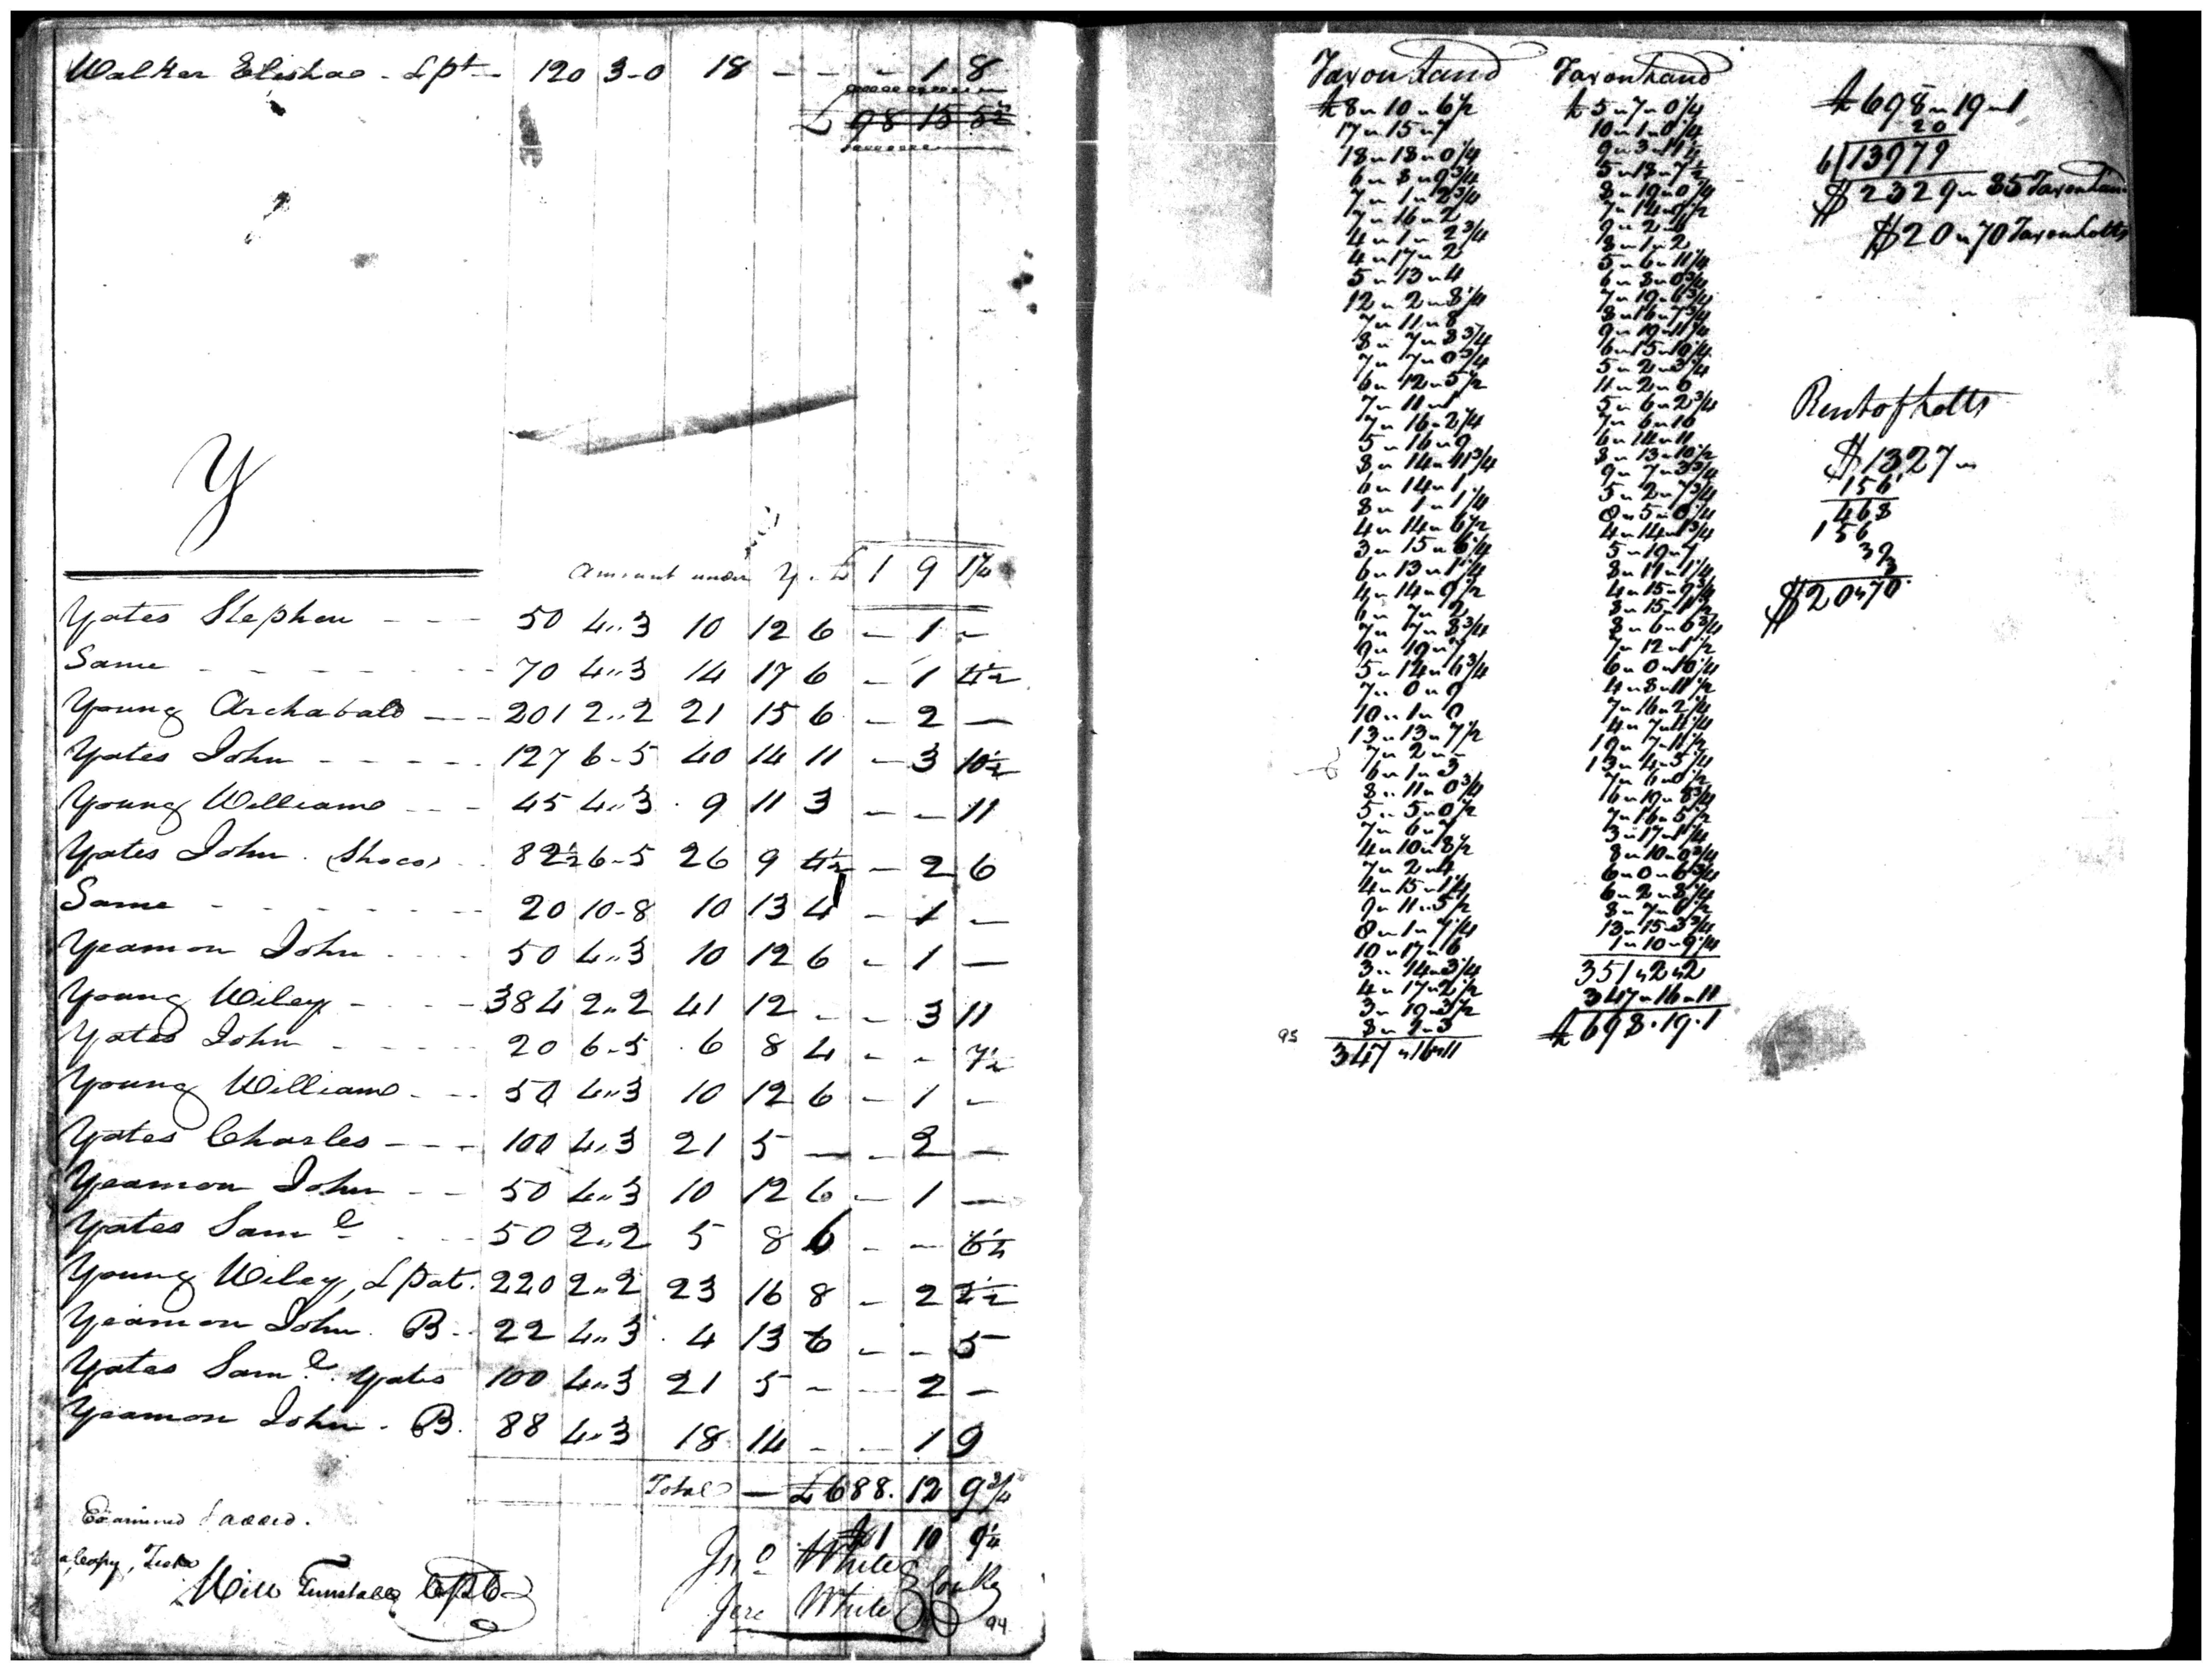 Walker Elishao - L pt - 120 3-0 18 - - - 1 8
£ 98 15 5½
Y
Amount under Y. £ 1 9 1¼
Yates Stephen - - - 50 4..3 10 12 6 - 1 -
Same - - - - - - - 70 4..3 14 17 6 - 1 4½
Young Archabald - - - 201 2..2 21 15 6 - 2 -
Yates John - - - - - 127 6-5 40 14 11 - 3 10½
Young William - - - 45 4..3 9 11 3 - - 11
Yates John (Shoco) - 82½ 6-5 26 9 4½ - 2 6
Same - - - - - - - 20 10-8 10 13 4 - 1 -
Yeamon John - - - - 50 4..3 10 12 6 - 1 -
Young Wiley - - - - 384 2..2 41 12 - - 3 11
Yates John - - - - 20 6-5 6 8 4 - - 7½
Young William - - - 50 4..3 10 12 6 - 1 -
Yates Charles - - - 100 4..3 21 5 - - 2 -
Yeamon John - - 50 4..3 10 12 6 - 1 -
Yates Saml - - 50 2..2 5 8 6 - - 6½
Young Wiley, L Pat. 220 2..2 23 16 8 - 2 2½
Yeamon John. B - 22 4..3 4 13 6 - - 5
Yates Saml. Yates 100 4..3 21 5 - - 2 -
Yeamon John - B. 88 4..3 18 14 - - 1 9
Total - £ 688. 12 9¾
Examined & added.
a Copy, Teste
Will Tunstall CPC
£1 10 9¼
Jno White
Jere White
94
Tax on Land
£8 " 10 " 6½
17 " 15 " 7
18 " 18 " 0¼
6 " 8 " 9¾
7 " 1 " 2¾
7 " 16 " 2
4 " 1 " 2¾
4 " 17 " 2
5 " 13 " 4
12 " 2 " 8¼
7 " 11 " 8
8 " 7 " 8¾
7 " 7 " 0¾
6 " 12 " 5½
7 " 11 " 1
7 " 16 " 2¼
5 " 16 " 9
8 " 14 " 11¾
6 " 14 " 1
8 " 1 " 1¼
4 " 14 " 6½
3 " 15 " 6¼
6 " 13 " 1¼
4 " 14 " 9½
6 " 7 " 2
7 " 7 " 8¾
9 " 19 " 7
5 " 14 " 6¾
7 " 0 " 9
10 " 1 " 0
13 " 13 " 7½
7 " 2 " 5
6 " 1 " 3
8 " 11 " 0¾
5 " 5 " 0½
7 " 6 " 7
4 " 10 " 8½
7 " 2 " 4
4 " 15 " 1¼
9 " 11 " 5½
8 " 1 " 7¼
10 " 17 " 6
3 " 14 " 3¼
4 " 17 " 2½
3 " 19 " 3½
8 " 2 " 3
95
347 " 16 " 11
Tax on Land
£5 " 7 " 0¼
10 " 1 " 0¼
9 " 3 " 11½
5 " 18 " 7½
8 " 19 " 0¼
9 " 2 " 6
8 " 1 " 2
5 " 6 " 11¼
6 " 8 " 0¾
7 " 19 " 6¾
8 " 16 " 7¾
9 " 19 " 11¼
6 " 15 " 10¼
5 " 2 " 3¼
11 " 2 " 0
5 " 6 " 2¾
7 " 6 " 10
6 " 14 " 11
8 " 13 " 10½
9 " 7 " 3¾
5 " 2 " 7¾
8 " 5 " 0¼
4 " 14 " 1¾
5 " 19 " 7
8 " 11 " 1¼
4 " 15 " 9¾
8 " 15 " 1½
8 " 6 " 6¾
7 " 12 " 1½
6 " 0 " 10¼
4 " 8 " 11½
7 " 16 " 2¼
4 " 7 " 4¼
19 " 7 " 11½
13 " 4 " 5¼
6 " 19 " 8¾
7 " 16 " 5½
3 " 17 " 1¼
8 " 10 " 0¾
6 " 0 " 6¾
6 " 2 " 8¼
8 " 7 " 6½
13 " 15 " 3¾
1 " 10 " 9¼
351 " 2 " 2
347 " 16 " 11
£698 . 19 . 1
£698 " 19 " 1
20
6 | 13979
$2329 " 85 Tax on Land
$20 " 70 Tax on Lotts
Rent of Lotts
$1327 "
156
468
156
39
3
$20 " 70